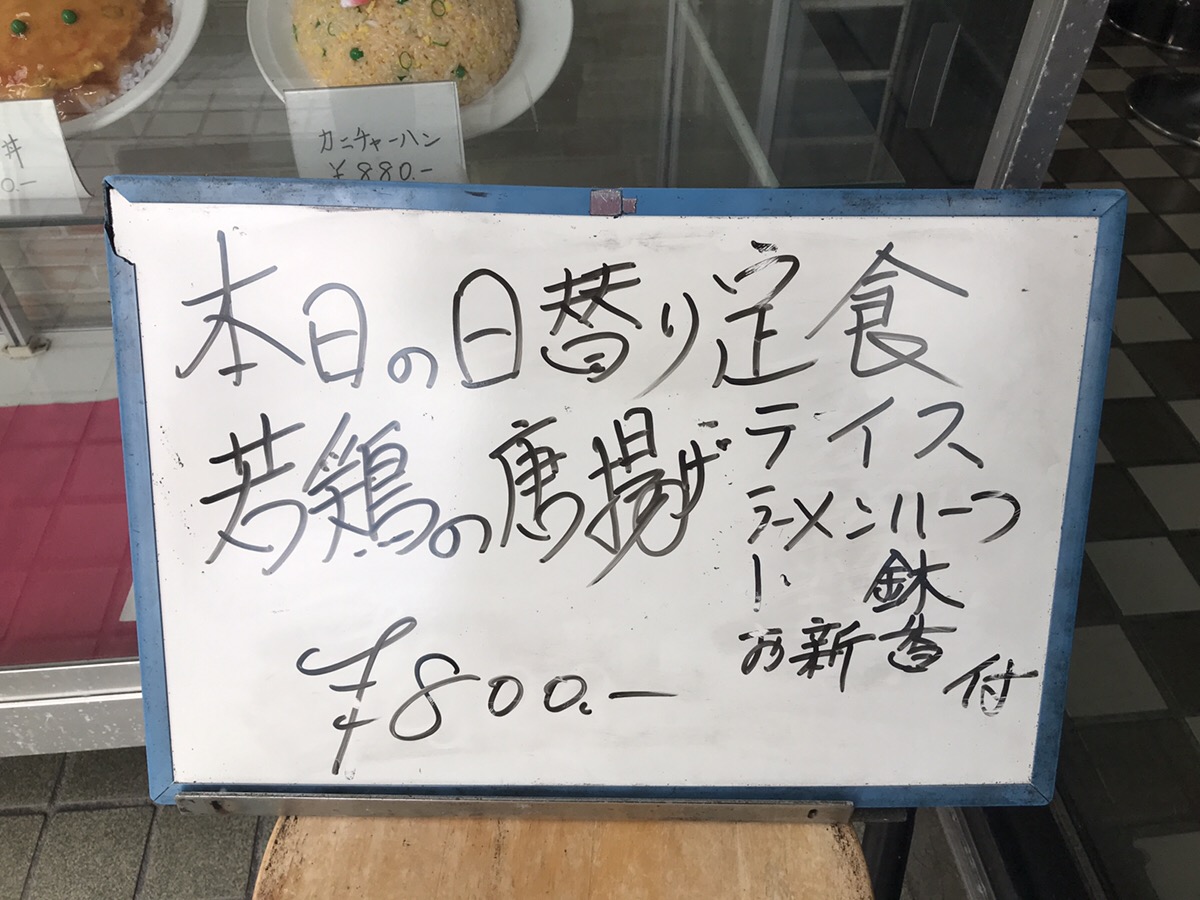 丼
0.-
カニチャーハン
¥880.-
本日の日替り定食
若鶏の唐揚げ
ライス
ラーメンハーフ
小鉢
お新香
付
¥800.-